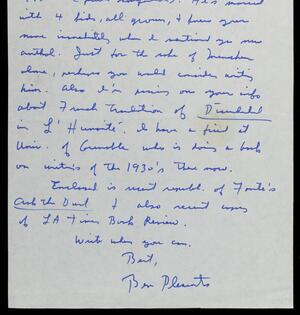 with 4 kids, all grown, & knew your
more immediately when I mentioned yr new
anthol. Just for the sake of Mencken
alone, perhaps you would consider writing
him. Also I'm using your info
about French tradition of
in L'Humanité. I have a friend at
Univ. of Grenoble who is doing a book
on writers of the 1930's there now.
Enclosed is recent republ. of Fante's
Ask the Dust & also recent copies
of LA Times Book Review.
Write when you can.
Best,
Ben Pleasants